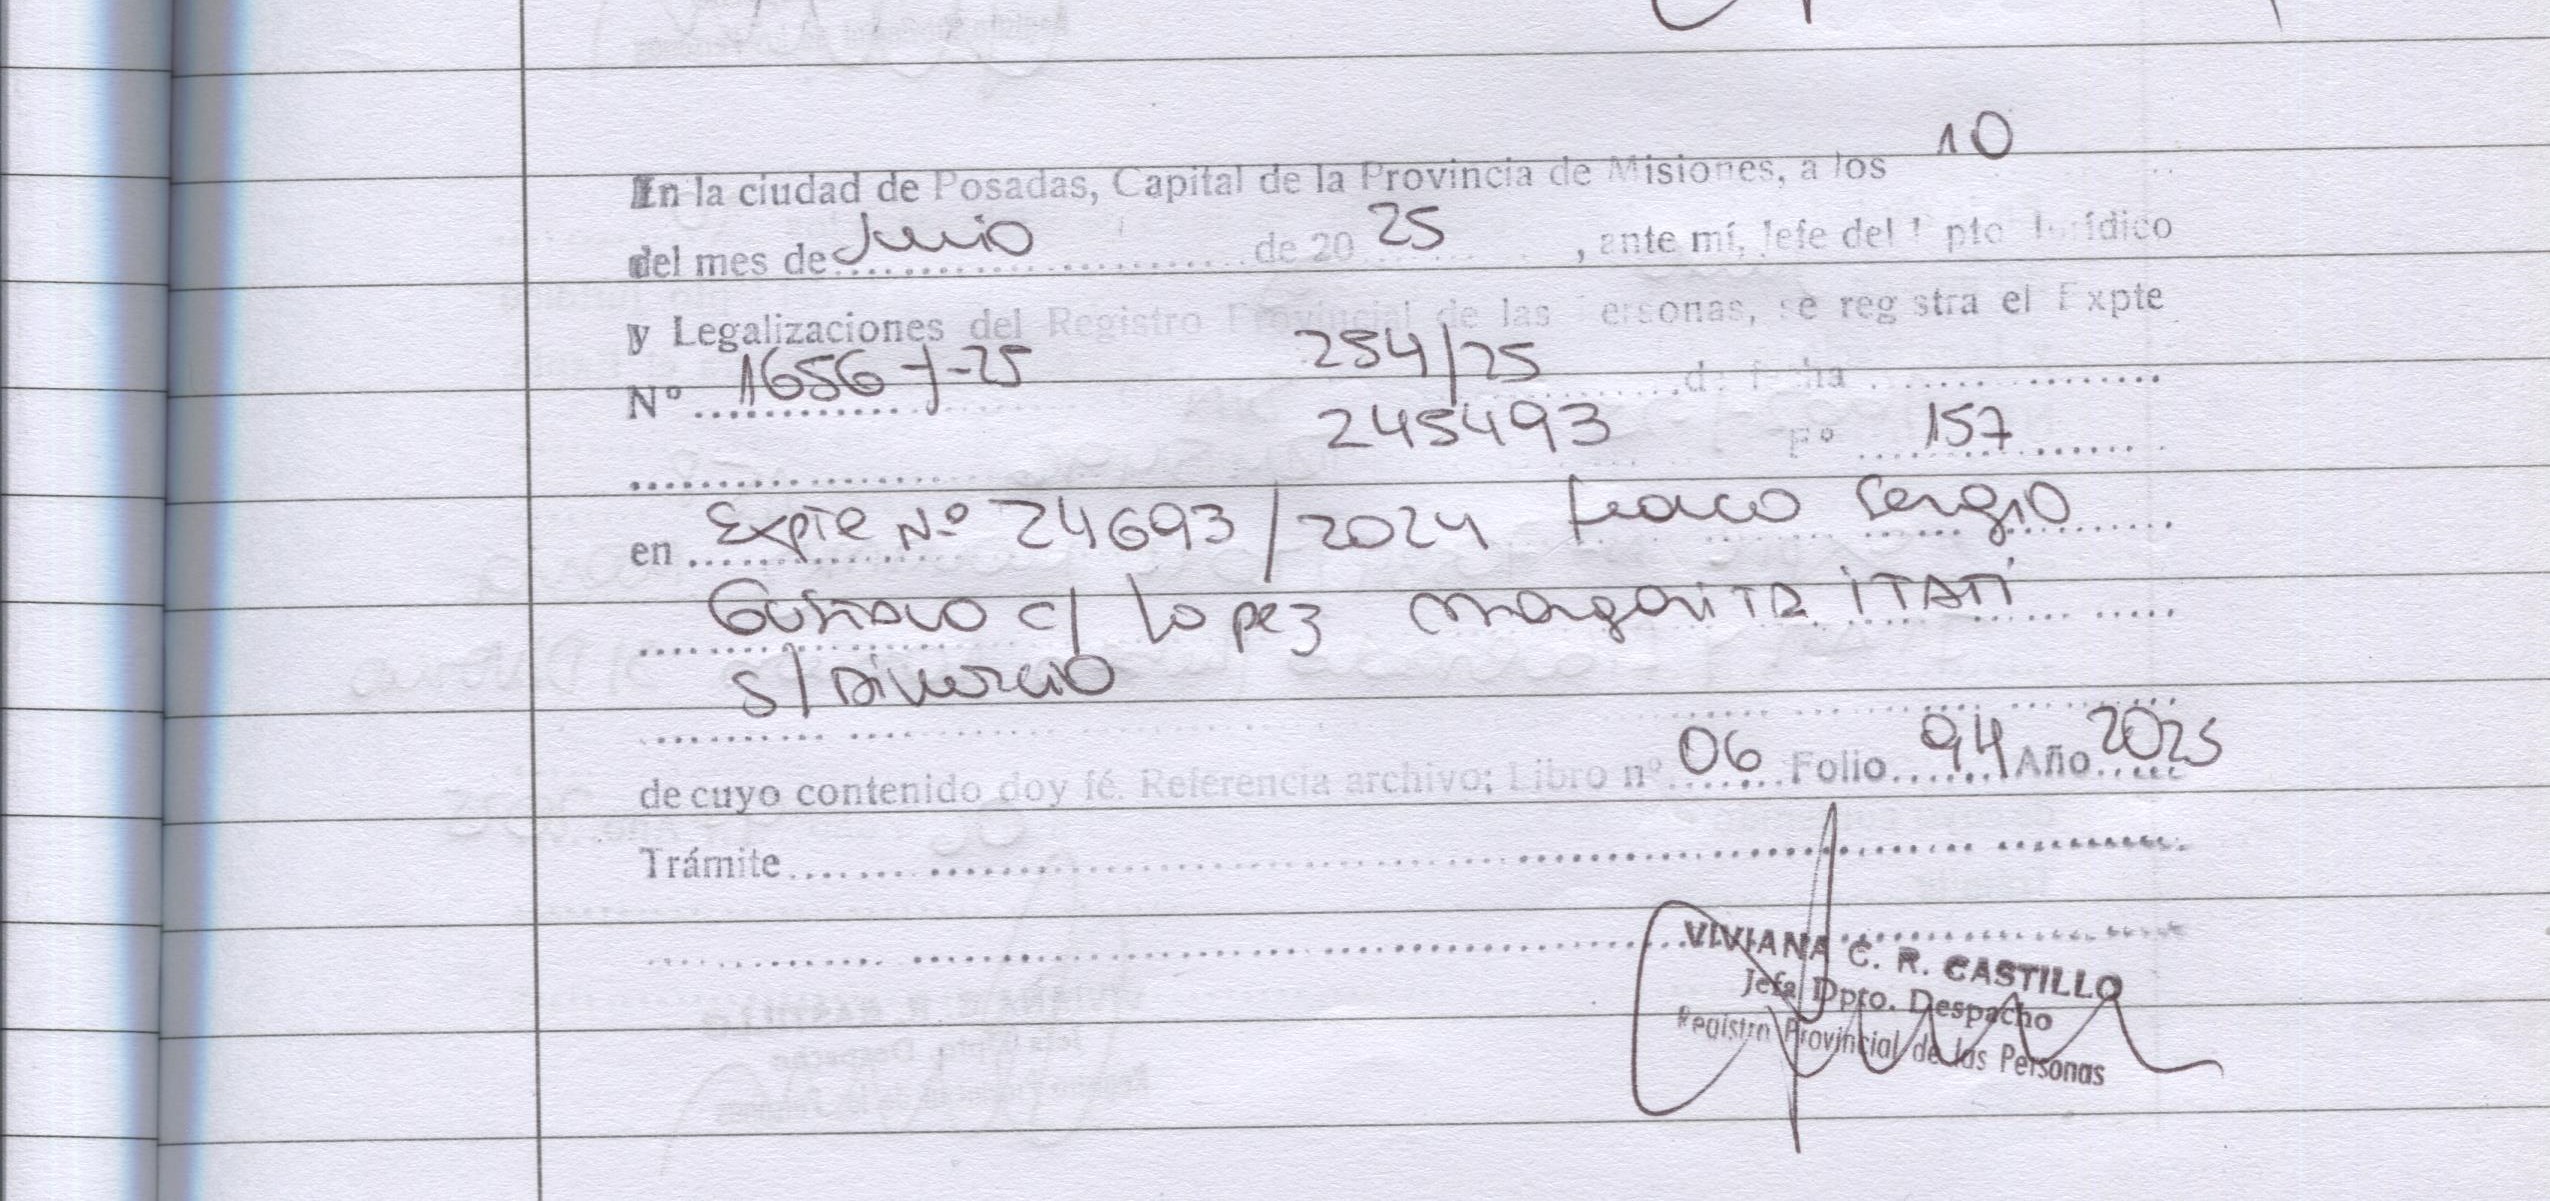 In la ciudad de Posadas, Capital de la Provincia de Misiones, a los 10
del mes de Junio de 20 25, ante mí, Jefe del Dpto Jurídico
y Legalizaciones del Registro Provincial de las Personas, se registra el Expte
Nº 1656-J-25 254/25 de fecha
245493 Fº 157
en Expte Nº 24693/2024 Sergio
Gustavo c/ Lopez Margarita ITATÍ
s/ Divorcio
de cuyo contenido doy fé. Referencia archivo; Libro nº 06 Folio 94 Año 2025
Trámite
VIVIANA C. R. CASTILLO
Jefa Dpto. Despacho
Registro Provincial de las Personas